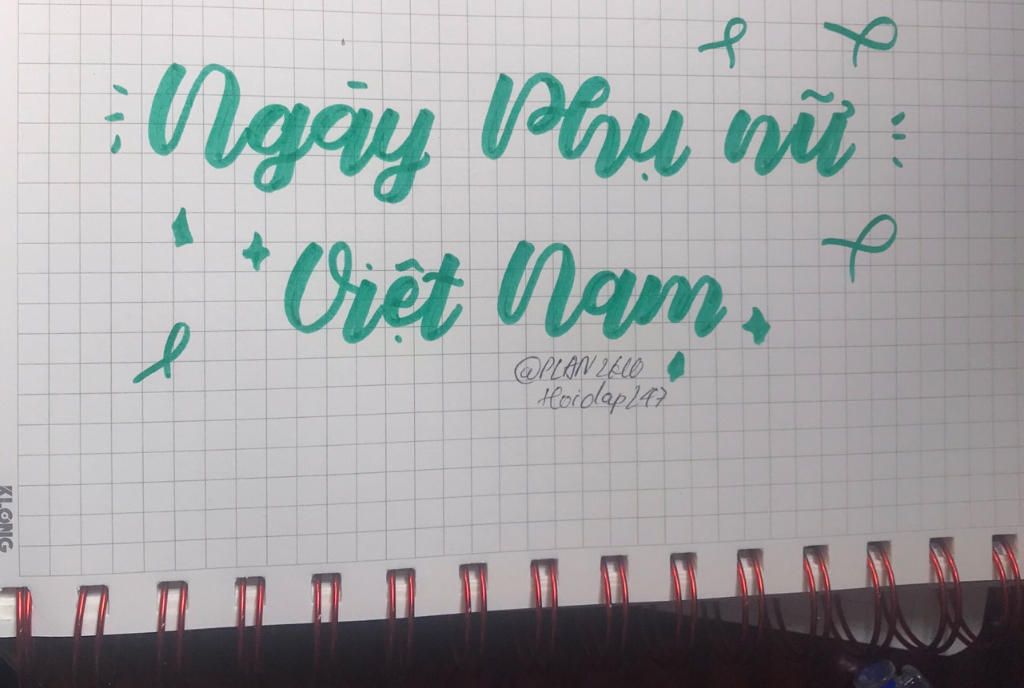 Ngày Phụ nữ
Việt Nam
@PLAN2610
Hoidap247
KLONG